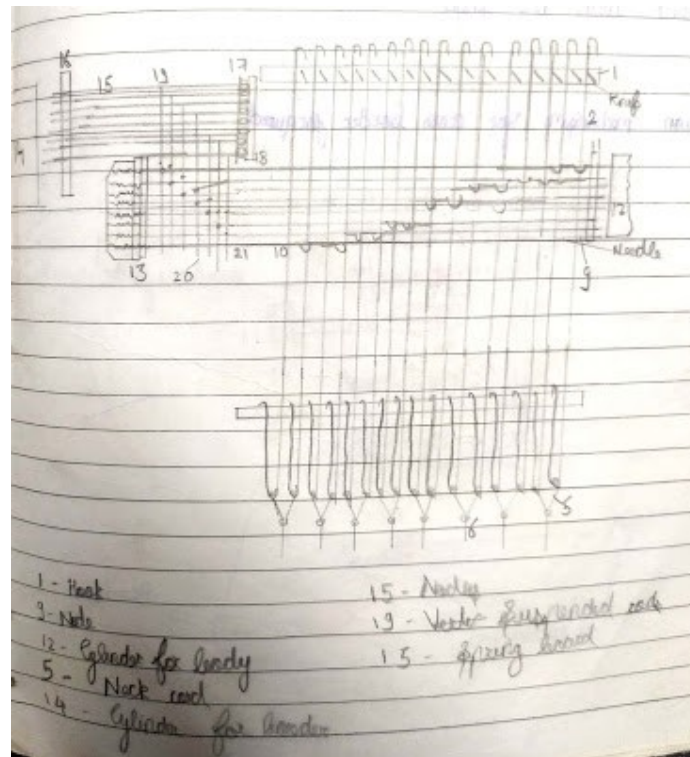 16
15
19
17
1
Knife
2
18
12
13
20
21
10
Needle
9
5
6
1 - Hook
9 - Nedle
12 - Cylinder for body
5 - Neck cord
14 - Cylinder for border
15 - Nedles
19 - Verder suspended cord
15 - Spring board